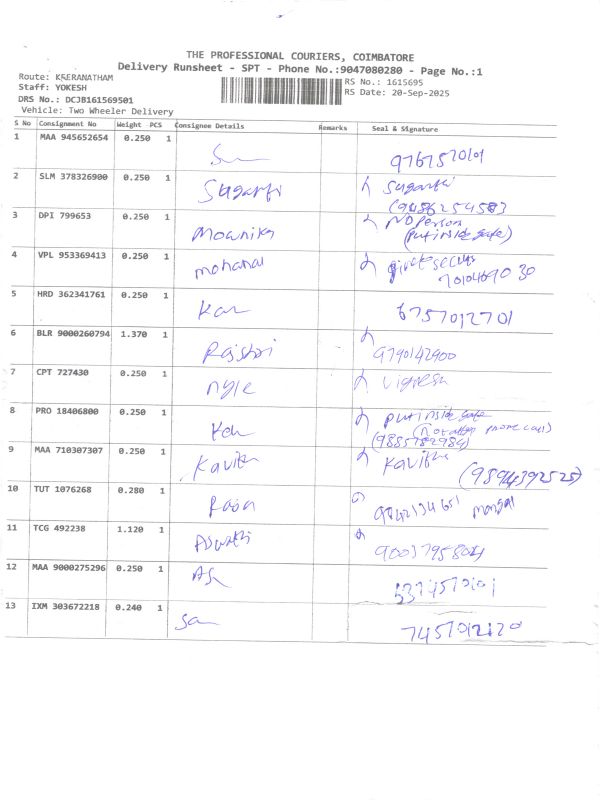 THE PROFESSIONAL COURIERS, COIMBATORE
Delivery Runsheet - SPT - Phone No.:9047080280 - Page No.:1
Route: KEERANATHAM
RS No.: 1615695
Staff: YOKESH
RS Date: 20-Sep-2025
DRS No.: DCJB161569501
Vehicle: Two Wheeler Delivery
S No Consignment No Weight PCS Consignee Details Remarks Seal & Signature
1 MAA 945652654 0.250 1
2 SLM 378326900 0.250 1 Suganthi Suganthi
3 DPI 799653 0.250 1 Mounika No Person
(Put inside gate)
4 VPL 953369413 0.250 1 mohanal
5 HRD 362341761 0.250 1 Kar 6757012701
6 BLR 9000260794 1.370 1 Rajshri
9790142900
7 CPT 727430 0.250 1 Vignesh
8 PRO 18406800 0.250 1 put inside gate
9 MAA 710307307 0.250 1 Kavith Kavitha (9894392525)
10 TUT 1076268 0.280 1
11 TCG 492238 1.120 1 Aswathi
9003795804
12 MAA 9000275296 0.250 1
13 IXM 303672218 0.240 1 Sa